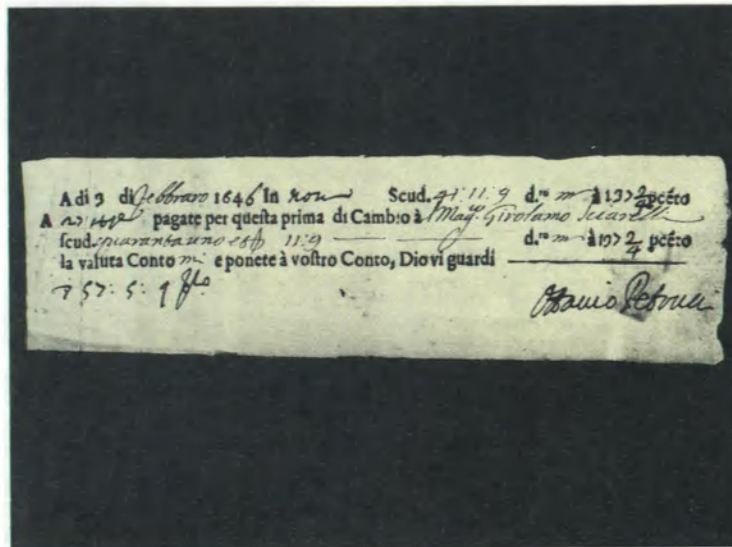 A di 3 di Febbraro 1646 In Scud. 41:11:9 d.ri m à 137 2/4 pcẽto
A pagate per questa prima di Cambio à Mag.co Girolamo
scud. quarantauno e ss 11:9 d.ri m à 137 2/4 pcẽto
la valuta Conto m e ponete à vostro Conto, Dio vi guardi
57:5:9
Ottavio Petrucci